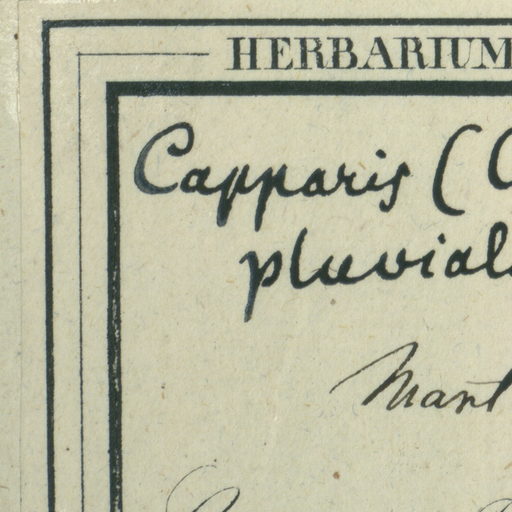 HERBARIUM
Capparis (
pluvial
Mart